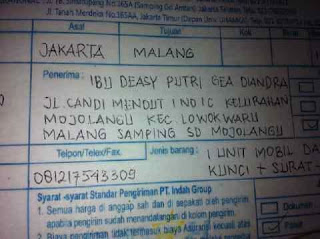 Jl. Tanah Merdeka No.
Asal Tujuan Kol
JAKARTA MALANG
Penerima : IBU DEASY PUTRI GEA DIANDRA
JL. CANDI MENDUT INDIC KELURAHAN
MOJOLANGU KEC LOWOKWARU
MALANG SAMPING SD MOJOLANGU
Telpon/Telex/Fax. Jenis barang : 1 UNIT MOBIL DA
081217543309 KUNCI + SURAT -
Syarat -syarat Standar Pengiriman PT. Indah Group
1. Semua harga di anggap sah dan di sepakati oleh pengirim
apabila pengirim sudah menandatangan di kolom pengirim.
2. Biaya pengiriman tidak termasuk biaya Asuransi kecuali atas